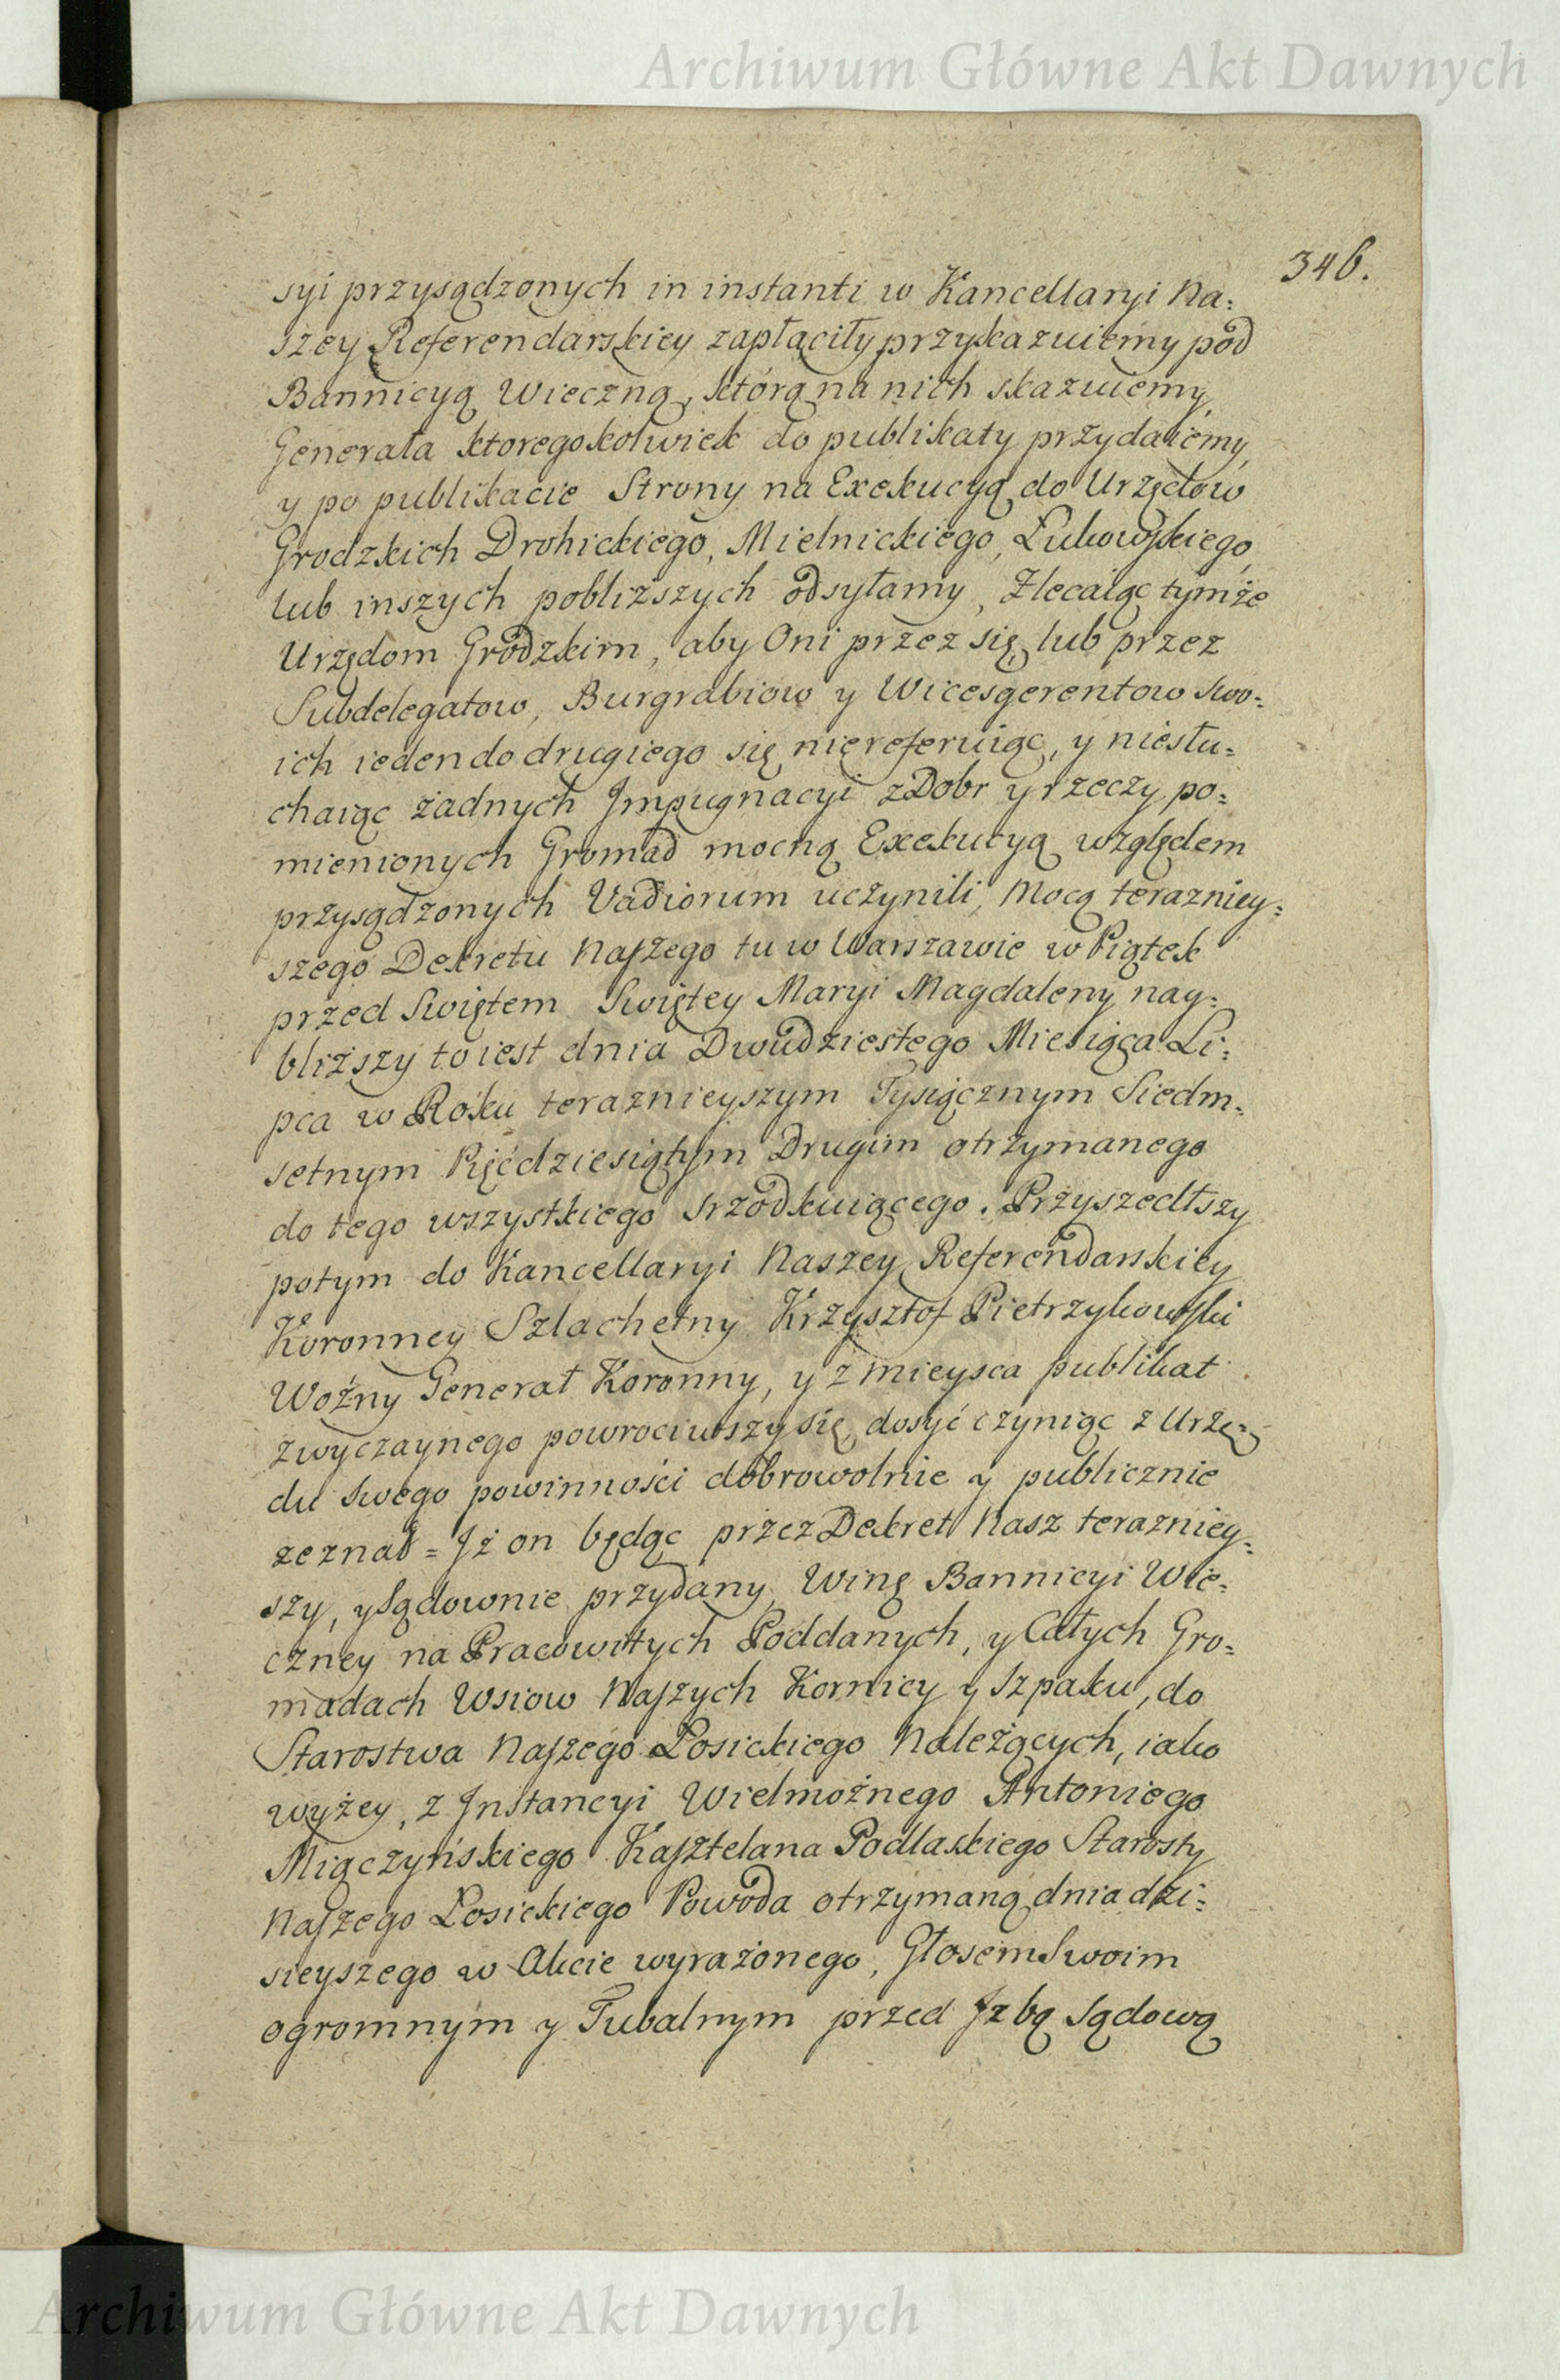 Archiwum Główne Akt Dawnych
346.
syi przysądzonych in instanti w Kancellaryi Na=
szey Referendarskiey zapłaciły przykazuiemy pod
Bannicyą Wieczną, którą na nich skazuiemy,
Generała ktoregoskolwiek do publikaty przydaiemy,
y po publikacie Strony na Exekucyą do Urzędow
Grodzkich Drohickiego, Mielnickiego, Łukowskiego,
lub inszych pobliższych odsyłamy, Zlecaiąc tymże
Urzędom Grodzkim, aby Oni przez się, lub przez
Subdelegatow, Burgrabiow y Wicesgerentow swo=
ich ieden do drugiego się niereferuiąc, y niesłu=
chaiąc żadnych Impugnacyi z Dobr y rzeczy po=
mienionych Gromad mocną Exekucyą względem
przysądzonych Vadiorum uczynili, Mocą terazniey=
szego Dekretu Naszego tu w Warszawie w Piątek
przed Swiętem Swiętey Maryi Magdaleny nay=
bliższy to iest dnia Dwudziestego Miesiąca Li=
pca w Roku teraznieyszym Tysiącznym Siedm=
setnym Pięćdziesiątym Drugim otrzymanego
do tego wszystkiego srzodkuiącego. Przyszedłszy
potym do Kancellaryi Naszey Referendarskiey
Koronney Szlachetny Krzysztof Pietrzykowski
Woźny Generał Koronny, y z mieysca publikat
zwyczaynego powrociwszy się, dosyć czyniąc z Urzę=
du swego powinności dobrowolnie y publicznie
zeznał = Iż on będąc przez Dekret Nasz terazniey=
szy, y Sądownie przydany, Winę Bannicyi Wie=
czney na Pracowitych Poddanych, y Całych Gro=
madach Wsiow Naszych Kornicy y Szpaku, do
Starostwa Naszego Łosickiego Należących, iako
wyżey, z Instancyi Wielmożnego Antoniego
Miączyńskiego Kasztelana Podlaskiego Starosty
Naszego Łosickiego Powoda otrzymaną dnia dzi=
sieyszego w Akcie wyrażonego, Głosem Swoim
ogromnym y Tubalnym przed Izbą Sądową
Archiwum Główne Akt Dawnych